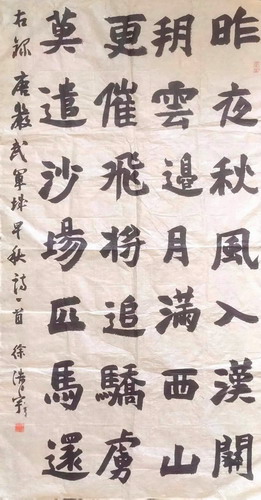 昨夜秋風入漢關
朔雲邊月滿西山
更催飛將追驕虜
莫遣沙場匹馬還
右錄唐嚴武軍城早秋詩一首 徐浩